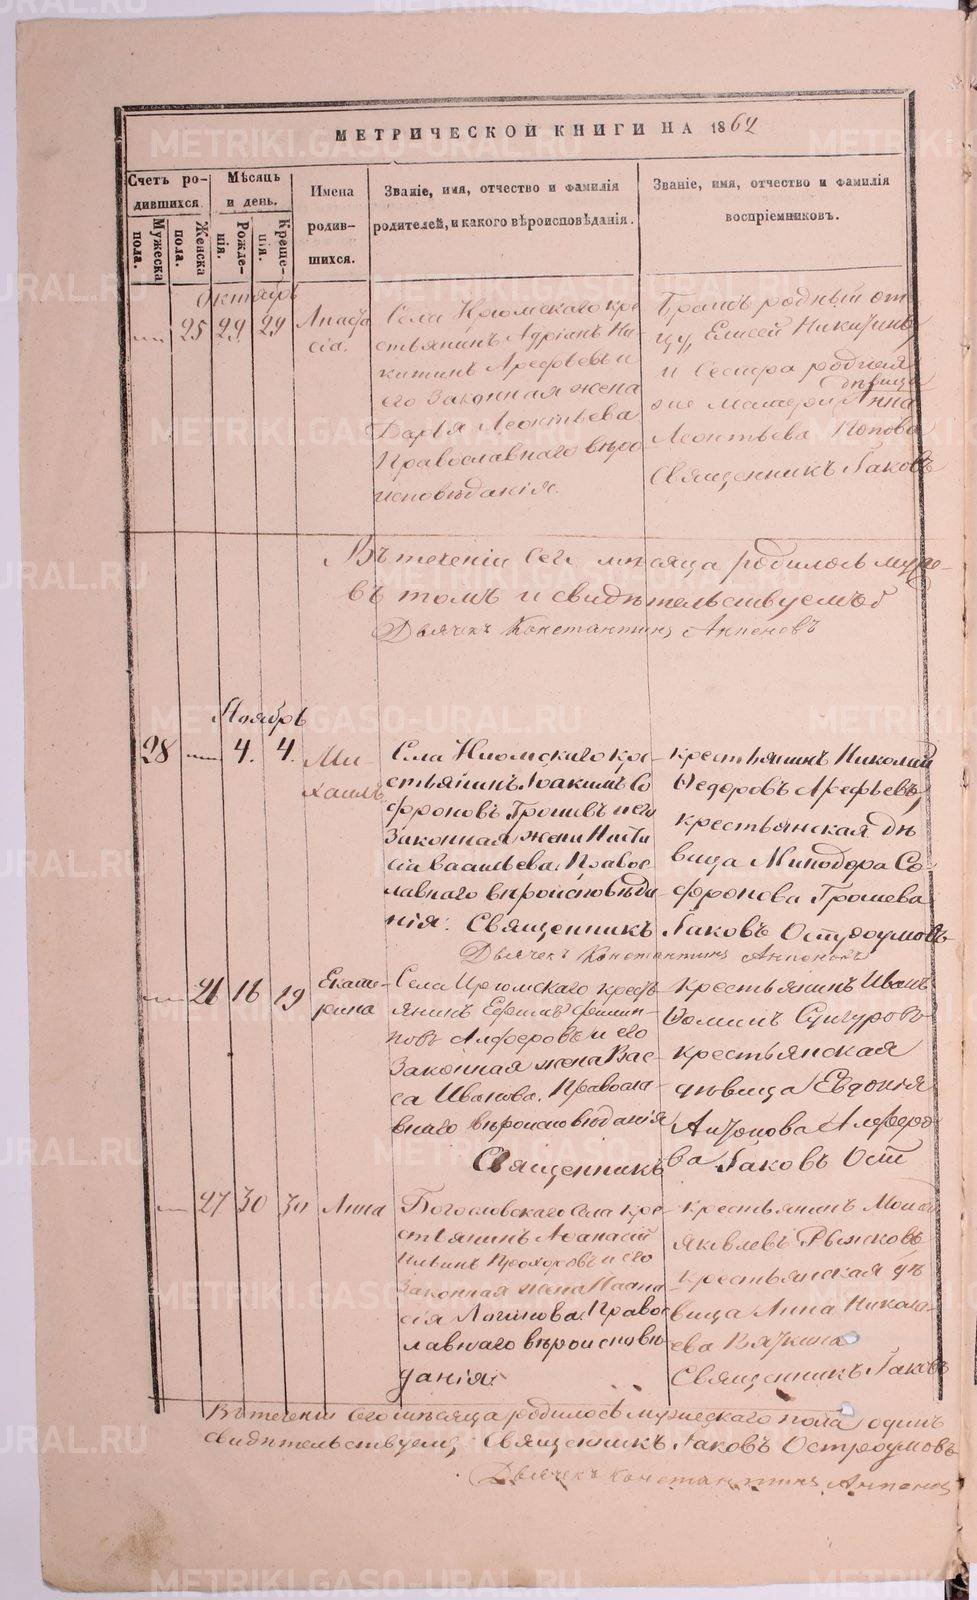 МЕТРИЧЕСКОЙ КНИГИ НА 1862
Счетъ ро-
дившихся.
Мѣсяцъ
и день.
Имена
родив-
шихся.
Званіе, имя, отчество и фамилія
родителей, и какого вѣроисповѣданія.
Званіе, имя, отчество и фамилія
воспріемниковъ.
Мужеска
пола.
Женска
пола.
Рожде-
нія.
Креще-
нія.
Октябрь
25 29 29 Анаста
сія.
Села Ирюмскаго кре
стьянинъ Адріанъ Ни
китинъ Арефьевъ и
его Законная жена
Дарья Леонтьева
Православнаго вѣро
исповѣданія.
Братъ родный от
цу, Елисей Никитинъ
и Сестра родная
дѣвица
Анна
Леонтьева Попова
Священникъ Іаковъ
Въ теченіи Сего мѣсяца родилось муже-
въ томъ и свидѣтельствуемъ
Дьячекъ Константинъ
Ноябрь
28 4. 4. Ми-
хаилъ
Села Ирюмскаго кре-
стьянинъ Іоакимъ Со
фроновъ и его
Законная жена Наста
сія Васильева. Правос
лавнаго вѣроисповѣда
нія. Священникъ
крестьянинъ Николай
Ѳедоровъ Арефьевъ,
крестьянская дѣ
вица Минодора Со-
фронова Грошева
Іаковъ Остроумовъ
Дьячекъ Константинъ
26 16 19 Екате-
рина
Села Ирюмскаго крест
янинъ Ефимъ
повъ Алферовъ и его
Законная жена Вас-
са Иванова. Правосла-
внаго вѣроисповѣданія
Священникъ
крестьянинъ Иванъ
Ѳоминъ
крестьянская
дѣвица Евдокія
Антонова Алферо
ва Іаковъ Ост
27 30 30 Анна
Богословскаго Села кре-
стьянинъ Аѳанасій
Ильинъ Прохоровъ и его
Законная жена Наста
сія Логинова. Правос
лавнаго вѣроисповѣ-
данія.
крестьянинъ Моисей
Яковлевъ Рыжковъ
крестьянская дѣ
вица Анна Никола-
ева Вяткина
Священникъ Іаковъ
Въ теченіи Сего мѣсяца родилось мужескаго пола одинъ
свидѣтельствуемъ, Священникъ Іаковъ Остроумовъ
Дьячекъ Константинъ
METRIKI.GASO-URAL.RU